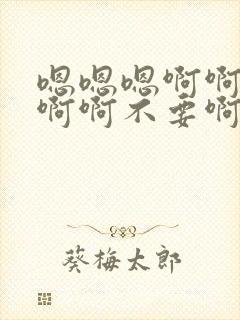 嗯嗯嗯啊啊
啊啊不要啊
葵梅太郎